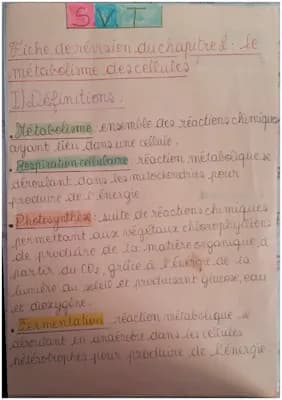 SVT
Fiche de révision du chapitre 2 : le
métabolisme des cellules
I) Définitions :
• Métabolisme : ensemble des réactions chimiques
ayant lieu dans une cellule.
• Respiration cellulaire : réaction métabolique se
déroulant dans les mitochondries pour
produire de l'énergie.
• Photosynthèse : suite de réactions chimiques
permettant aux végétaux chlorophylliens
de produire de la matière organique, à
partir du CO2, grâce à l'énergie de la
lumière du soleil et produisant glucose, eau
et dioxygène.
• Fermentation : réaction métabolique se
déroulant en anaérobie dans les cellules
hétérotrophes pour produire de l'énergie.